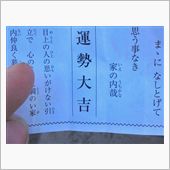 まゝになしとげて
思う事なき
家の内哉
運勢大吉
目上の人の思いがけない引
立で 心の
内仲良く